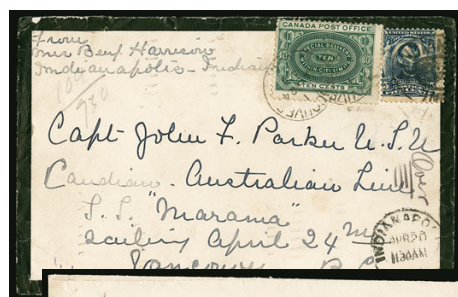 From
Mrs Benj Harrison
Indianapolis - Indiana
730
CANADA POST OFFICE
SPECIAL DELIVERY
TEN
WITHIN CITY LIMITS
TEN CENTS
Capt John F. Parker U.S.N
Canadian - Australian Line
S.S. "Marama"
sailing April 24
Vancouver B.C.
Over
INDIANAPO
APR 20
1130AM